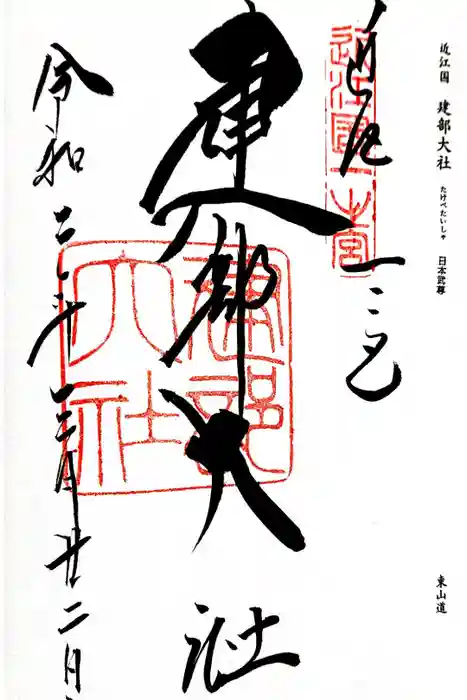 近江国 建部大社 たけべたいしゃ 日本武尊
東山道
近江国一之宮
近江國一之宮
建部大社
建部大社
令和二年三月廿二日